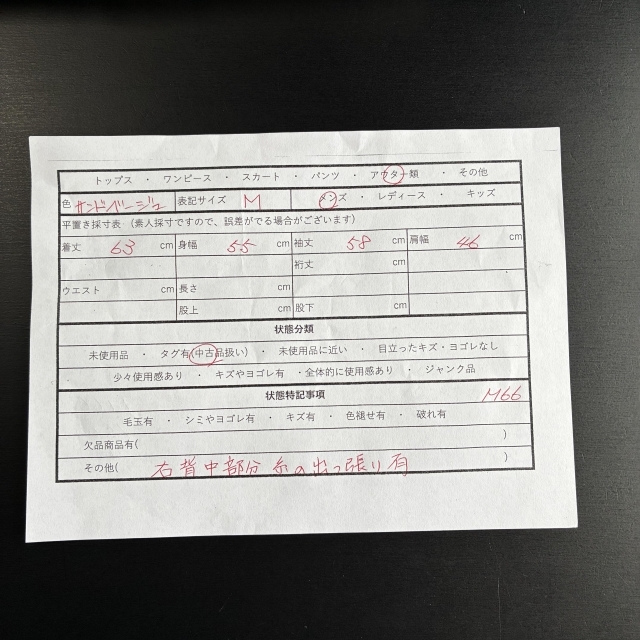 トップス ・ ワンピース ・ スカート ・ パンツ ・ アウター類 ・ その他
色 サンドベージュ 表記サイズ M メンズ ・ レディース ・ キッズ
平置き採寸表 (素人採寸ですので、誤差がでる場合がございます)
着丈 63 cm 身幅 55 cm 袖丈 58 cm 肩幅 46 cm
裄丈 cm
ウエスト cm 長さ cm
股上 cm 股下 cm
状態分類
未使用品 ・ タグ有(中古品扱い) ・ 未使用品に近い ・ 目立ったキズ・ヨゴレなし
少々使用感あり ・ キズやヨゴレ有 ・全体的に使用感あり ・ ジャンク品
状態特記事項 M66
毛玉有 ・ シミやヨゴレ有 ・ キズ有 ・ 色褪せ有 ・ 破れ有
欠品商品有( )
その他( 右背中部分 糸の出っ張り有 )